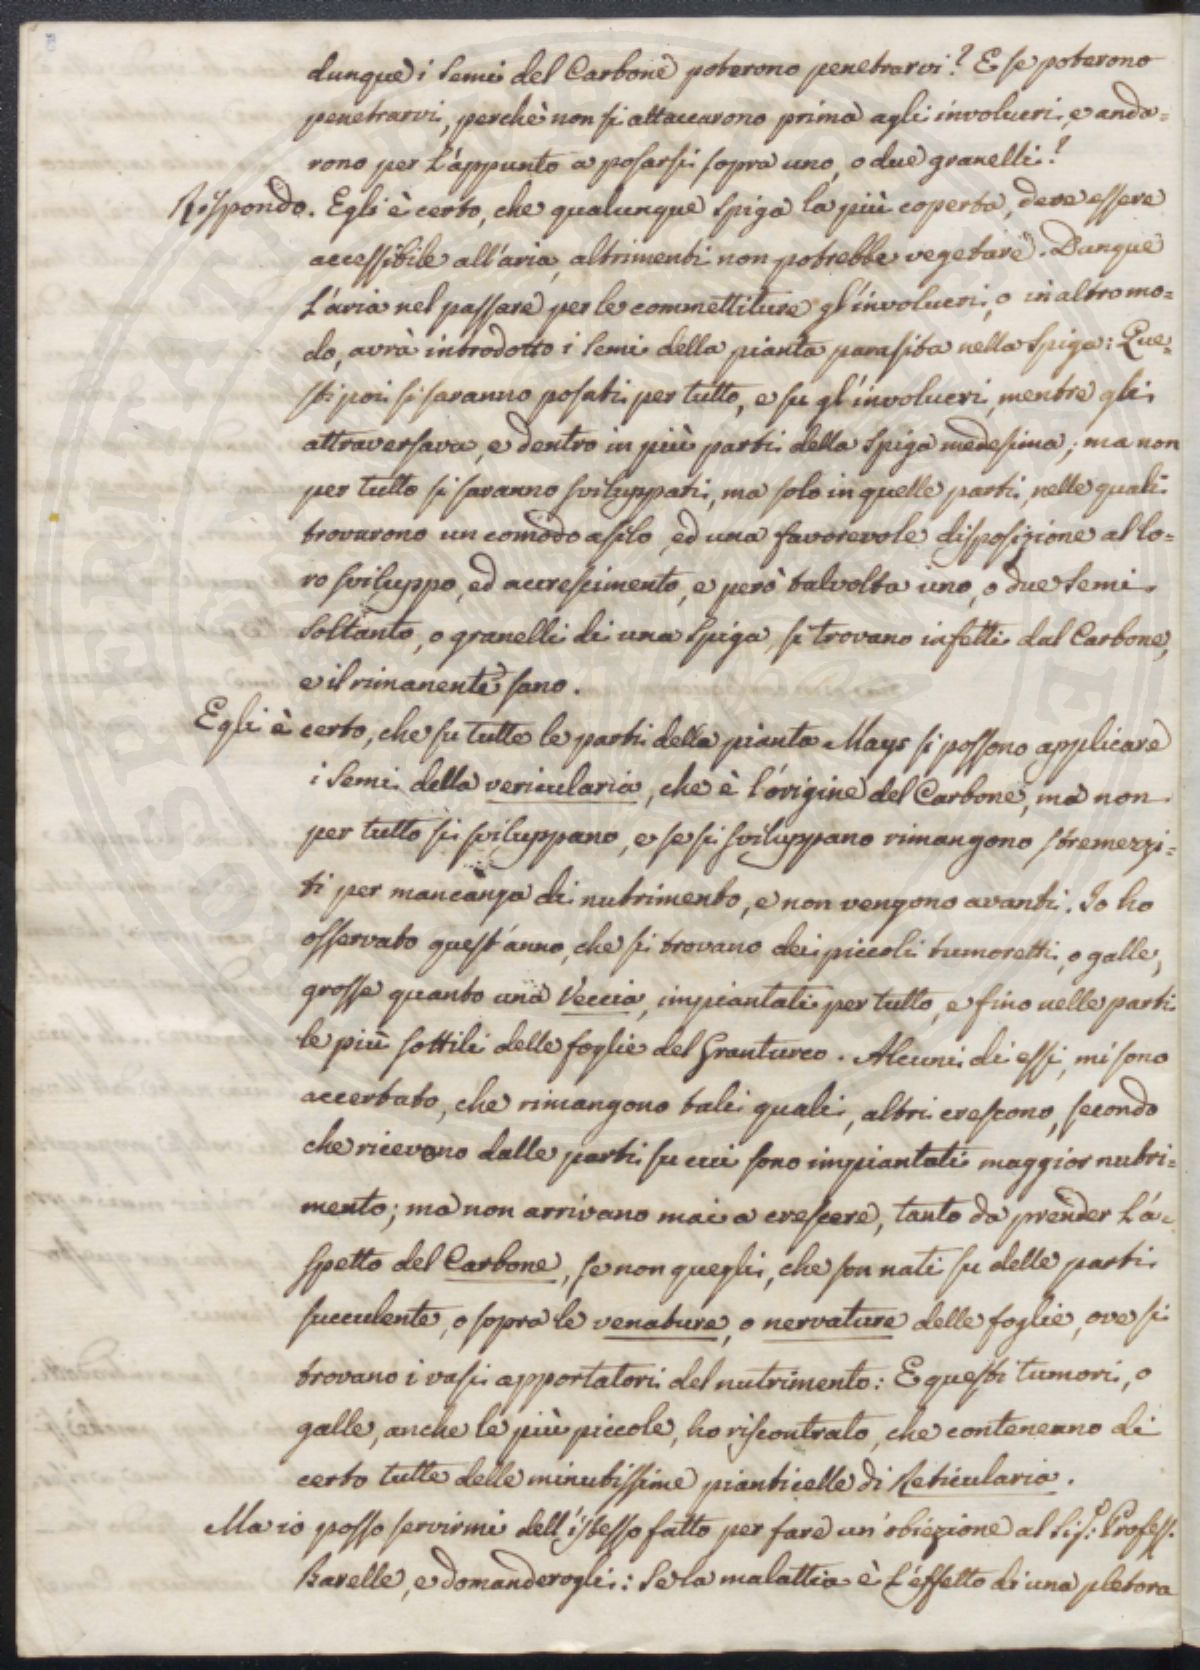 dunque i Semi del Carbone poterono penetrarvi? E se poterono
penetrarvi, perchè non si attaccarono prima agli involucri, e anda=
rono per l'appunto a posarsi sopra uno, o due granelli?
Rispondo. Egli è certo, che qualunque spiga la più coperta, deve essere
accessibile all'aria, altrimenti non potrebbe vegetare. Dunque
l'aria nel passare per le commettiture gl'involucri, o in altro mo=
do, avrà introdotto i Semi della pianta parasita nella Spiga: Que=
sti poi si saranno posati per tutto, e su gl'involucri, mentre gli
attraversava, e dentro in più parti della Spiga medesima; ma non
per tutto si saranno sviluppati, ma solo in quelle parti, nelle quali
trovarono un comodo asilo, ed una favorevole disposizione al lo=
ro sviluppo, ed accrescimento, e però talvolta uno, o due Semi
soltanto, o granelli di una Spiga, si trovano infetti dal Carbone,
e il rimanente sano.
Egli è certo, che su tutte le parti della pianta Mays si possono applicare
i Semi della vericularia, che è l'origine del Carbone, ma non
per tutto si sviluppano, e se si sviluppano rimangono stremezzi=
ti per mancanza di nutrimento, e non vengono avanti. Io ho
osservato quest'anno, che si trovano dei piccoli tumoretti, o galle,
grosse quanto una Veccia, impiantati per tutto, e fino nelle parti
le più sottili delle foglie del Granturco. Alcuni di essi, mi sono
accertato, che rimangono tali quali, altri crescono, secondo
che ricevono dalle parti su cui sono impiantati maggior nutri=
mento; ma non arrivano mai a crescere, tanto da prender l'a=
spetto del Carbone, se non quegli, che son nati su delle parti
succulente, o sopra le venature, o nervature delle foglie, ove si
trovano i vasi apportatori del nutrimento: E questi tumori, o
galle, anche le più piccole, ho riscontrato, che contenevano di
certo tutte delle minutissime pianticelle di Reticularia.
Ma io posso servirmi dell'istesso fatto per fare un'obiezione al Sig.º Profess.
Barelle, e domanderogli: Se la malattia è l'effetto di una pletora